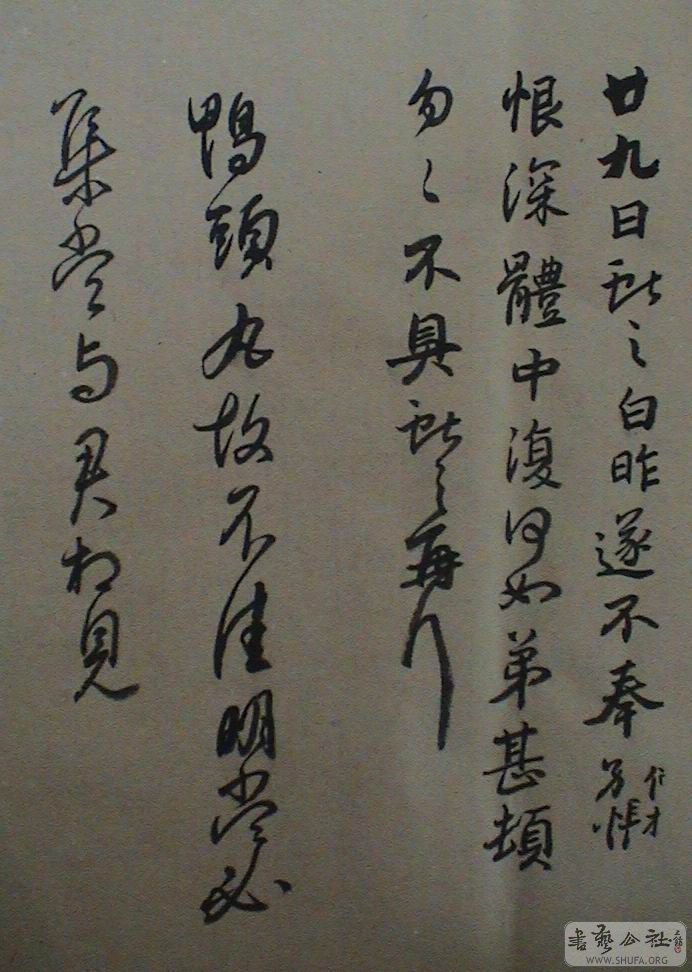 廿九日獻之白昨遂不奉別悵
恨深體中復何如弟甚頓
匆〻不具獻之再拜
鴨頭丸故不佳明當必
集當与君相見
書藝公社
WWW.SHUFA.ORG